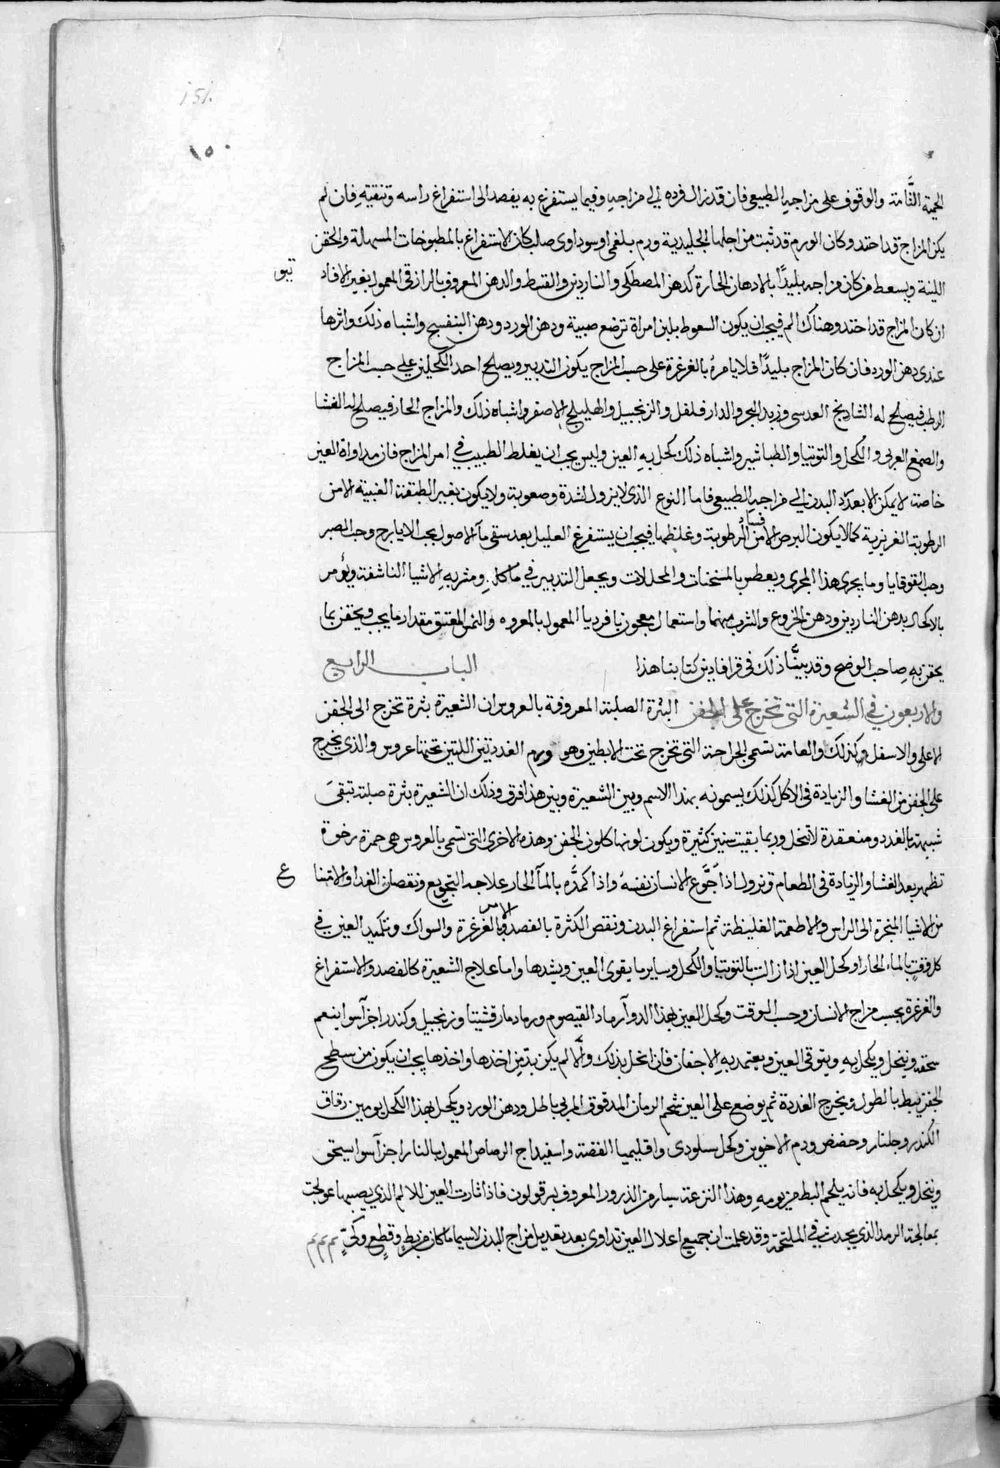 ١٥٠
الحمية التَّامة والوقوف على مزاجه الطبيعى فان قدر ان الفرده الى مزاجه وفيما يستفرغ به يقصد الى استفراغ راسه وتنقيته فان لم
يكن المزاج قد احتد وكان الورم قد ثبت من اجلها الجليدية ورم بلغمى او سوداوى صلب كان الاستفراغ بالمطبوخات المسهالة والحقن
اللينة ويسعط من كان مزاجه بليدًا بالادهان الحارة كدهن المصطكى والناردين والقسط والدهن المعروف بالرازقى المعمول بغير الافاد
ان كان المزاج قد احتد وهناك الم فيجب ان يكون السعوط بلبن امراة ترضع صبية ودهن الورد ودهن البنفسج واشباه ذلك واثرها
عندى دهن الورد فان كان المزاج بليدًا فلا يامره بالغرغرة على حسب المزاج يكون التدبير ويصلح احد الكحلين على حسب المزاج
الرطب فيصلح له الشاذنج العدسى وزبد البحر والدارفلفل والزنجبيل والهليلج الاصفر واشباه ذلك والمزاج الحار فيصلح له النشا
والصمغ العربى والكحل والتوتيا والطباشير واشباه ذلك كحل به العين وليس يجب ان يغلط الطبيب فى امر المزاج فان مداواة العين
خاصة لا يمكن الا بعد رد البدن الى مزاجه الطبيعى فاما النوع الذى لا يزول لشدة وصعوبة ولا يكون بغير الطبقة العنبية الا من
الرطوبة الغريزية كما لا يكون البرص الا من الرطوبة وغلظها فيجب ان يستفرغ العليل بعد سقى مآ الاصول بحب الايارج وحب الصبر
وحب القوقايا وما يجرى هذا المجرى ويعطس بالمسخنات والمحللات ويجعل التدبير فى ماكله ومشربه الاشيا الناشفة ويؤمر
بالاكحال بدهن الناردين ودهن الخروع والشرب منهما واستعمال معجون المعمول بالمعروه والخمر العتيق مقدار ما يجب ويحقن بما
يحقن به صاحب الوضح وقد بينَّا ذلك فى قرافادين كتابنا هذا الباب الرابع
والاربعون فى الشعيرة التى تخرج على الجفن البثرة الصلبة المعروفة بالعروس ان الشعيرة بثرة تخرج الى الجفن
الاعلى والاسفل وكذلك والعامة تسمى الجراحة التى تخرج تحت الابطين وهو ورم الغدتين اللتين تحتها عروس والذى يخرج
على الجفن من العشا والزيادة فى الاكل كذلك يسمونه بهذا الاسم وبين الشعيرة وبين هذا فرق وذلك ان الشعيرة بثرة صلبة تبقى
شبيهة بالغدد ومنعقدة لا تنحل وربما بقيت سنين كثيرة ويكون لونها كلون الجفن وهذه الاخرى التى تسمى بالعروس هى حمرة رخوة
تظهر بعد العشا والزيادة فى الطعام وتزول اذا جوَّع الانسان نفسه واذا كمدَّه بالمآ الحار علاجه التجويع ونقصان الغدا والامتنا
من الاشيا المبخرة الى الراس والاطعمة الغليظة ثم استفراغ البدن ونقص الكثرة بالفصد وبالامر بالغرغرة والسواك وتكميد العين فى
كل وقت بالماء الحار او كحل العين اذا زالت بالتوتيا والكحل وساير ما يقوى العين ويشدها واما علاج الشعيرة كالفصد والاستفراغ
والغرغرة بحسب مزاج الانسان وحسب الوقت وكحل العين بهذا الدوآ رماد القيصوم ورماد مارقشيتا وزنجبيل وكندر اجزآ سوا ينعم
سحقه وينخل ويكحل به ويتوقى العين ويعتمد به الاجفان فان انحل بذلك والا لم يكن بدّ من اخذها واخذها يجب ان يكون من سطح
الجفن يبط بالطول ويخرج الغددة ثم يوضع على العين شحم الرمان المدقوق المربى باطل ودهن الورد ويكحل بهذا الكحل يومين دقاق
الكندر وجلنار وحضض ودم الاخوين وكحل سلودى واقليميا الفضة واسفيداج الرصاص المعمول بالنار اجزآ سوا يسحق
وينخل ويكحل به فانه يلحم البط من يومه وهذا النزعة سيار من الذرور المعروف ببرقولون فاذا ثارت العين للالم الذي يصيبها عولجت
بمعالجة الرمد الذي يحدث فى الملتحمة وقد علمت ان جميع اعلال العين تداوى بعد تعديل مزاج البدن لاسيما ما كان من بط وقطع وكىّ